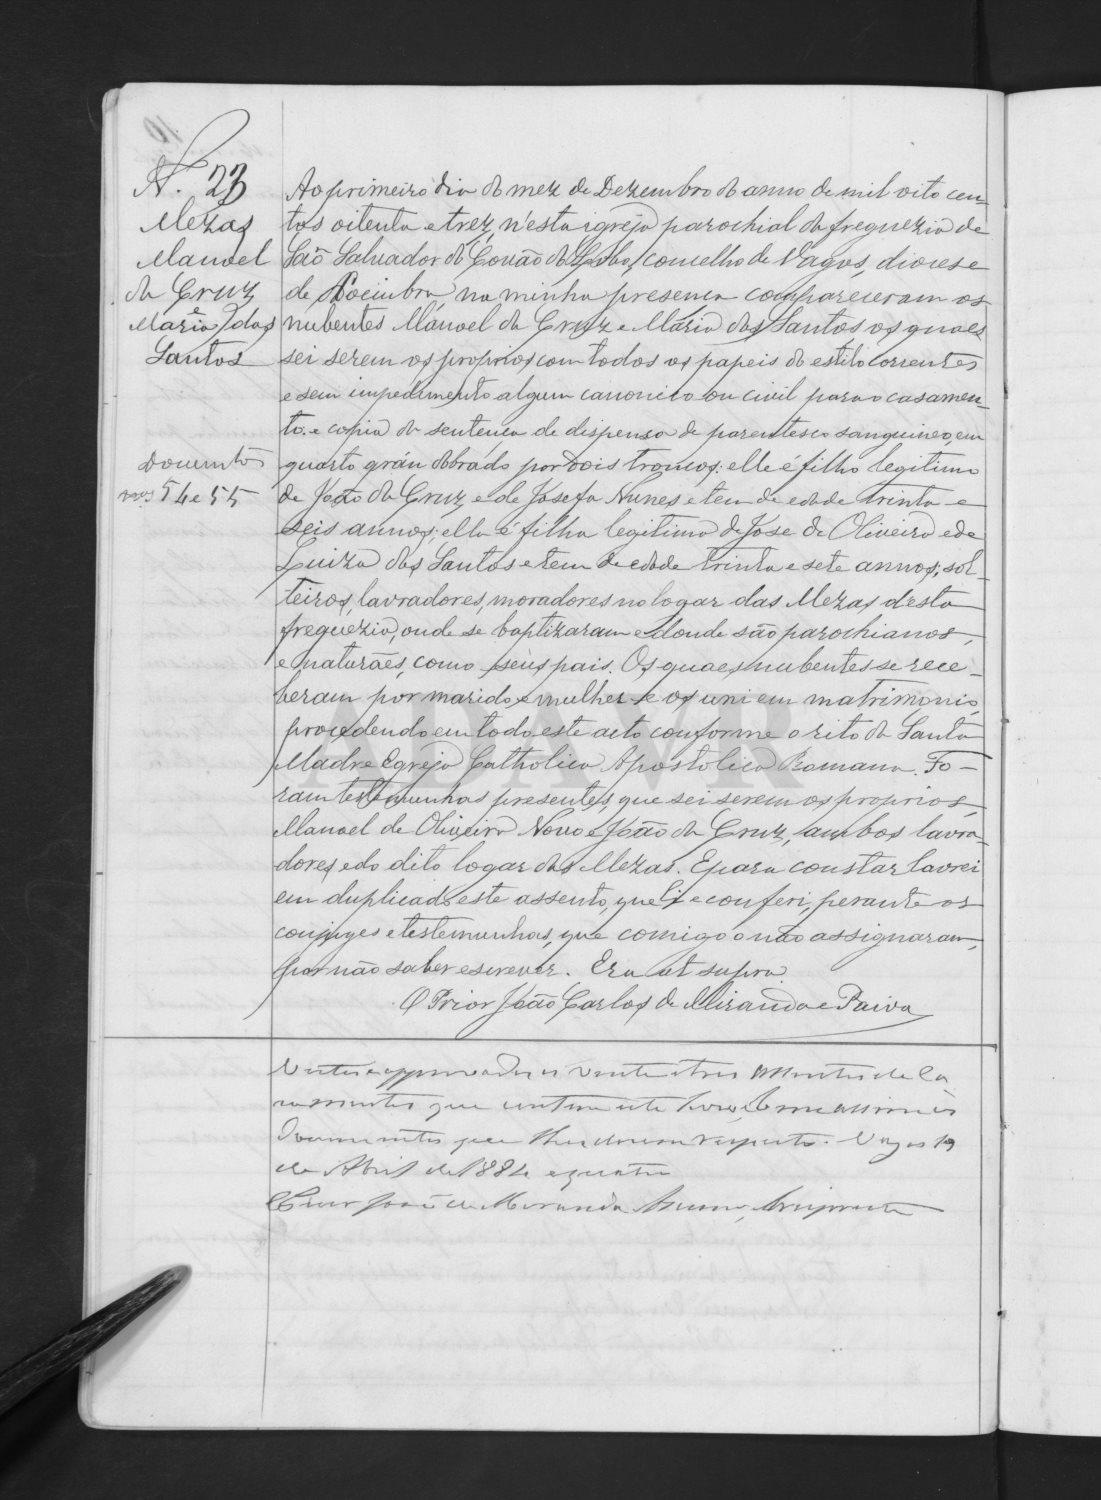 N.º 23
Mezas
Manoel
da Cruz
e
Maria das
Santos
Documtos
nos 54 e 55
Ao primeiro dia do mez de Dezembro do anno de mil oito cen-
tos oitenta e trez, n'esta igreja parochial da freguezia de
São Salvador do Covão do Lobo, concelho de Vagos, diocese
de Coimbra, na minha presença compareceram os
nubentes Manoel da Cruz e Maria dos Santos os quaes
sei serem os proprios com todos os papeis do estilo correntes
e sem impedimento algum canonico ou civil para o casamen-
to. e copia da sentença de dispensa de parentesco sanguineo, em
quarto gráu dobrado por dois troncos: elle é filho legitimo
de João da Cruz e de Josefa Nunes e tem de edade trinta e
seis annos; ella é filha legitima de Jose de Oliveira e de
Luiza dos Santos e tem de edade trinta e sete annos; sol-
teiros, lavradores, moradores no logar das Mezas d'esta
freguezia, onde se baptizaram e donde são parochianos,
e naturães, como seus pais. Os quaes nubentes se rece-
beram por marido e mulher e os uni em matrimonio,
procedendo em todo este acto conforme o rito da Santa
Madre Egreja Catholica Apostolica Romana. Fo-
ram testemunhas presentes, que sei serem os proprios,
Manoel de Oliveira Novo e João da Cruz, ambos lavra-
dores e do dito logar das Mezas. E para constar lavrei
em duplicado este assento, que li e conferi, perante os
conjuges e testemunhas, que comigo o não assignaram,
por não saber escrever. Era ut supra
O Prior João Carlos de Miranda e Paiva
Vistos e approvados os vinte e tres assentos de ca
samentos que contem este livro, bem assim os
documentos que lhes dizem respeito. Vagos 19
de Abril de 1884 e quatro
João de Miranda Arcipreste
ADAVR